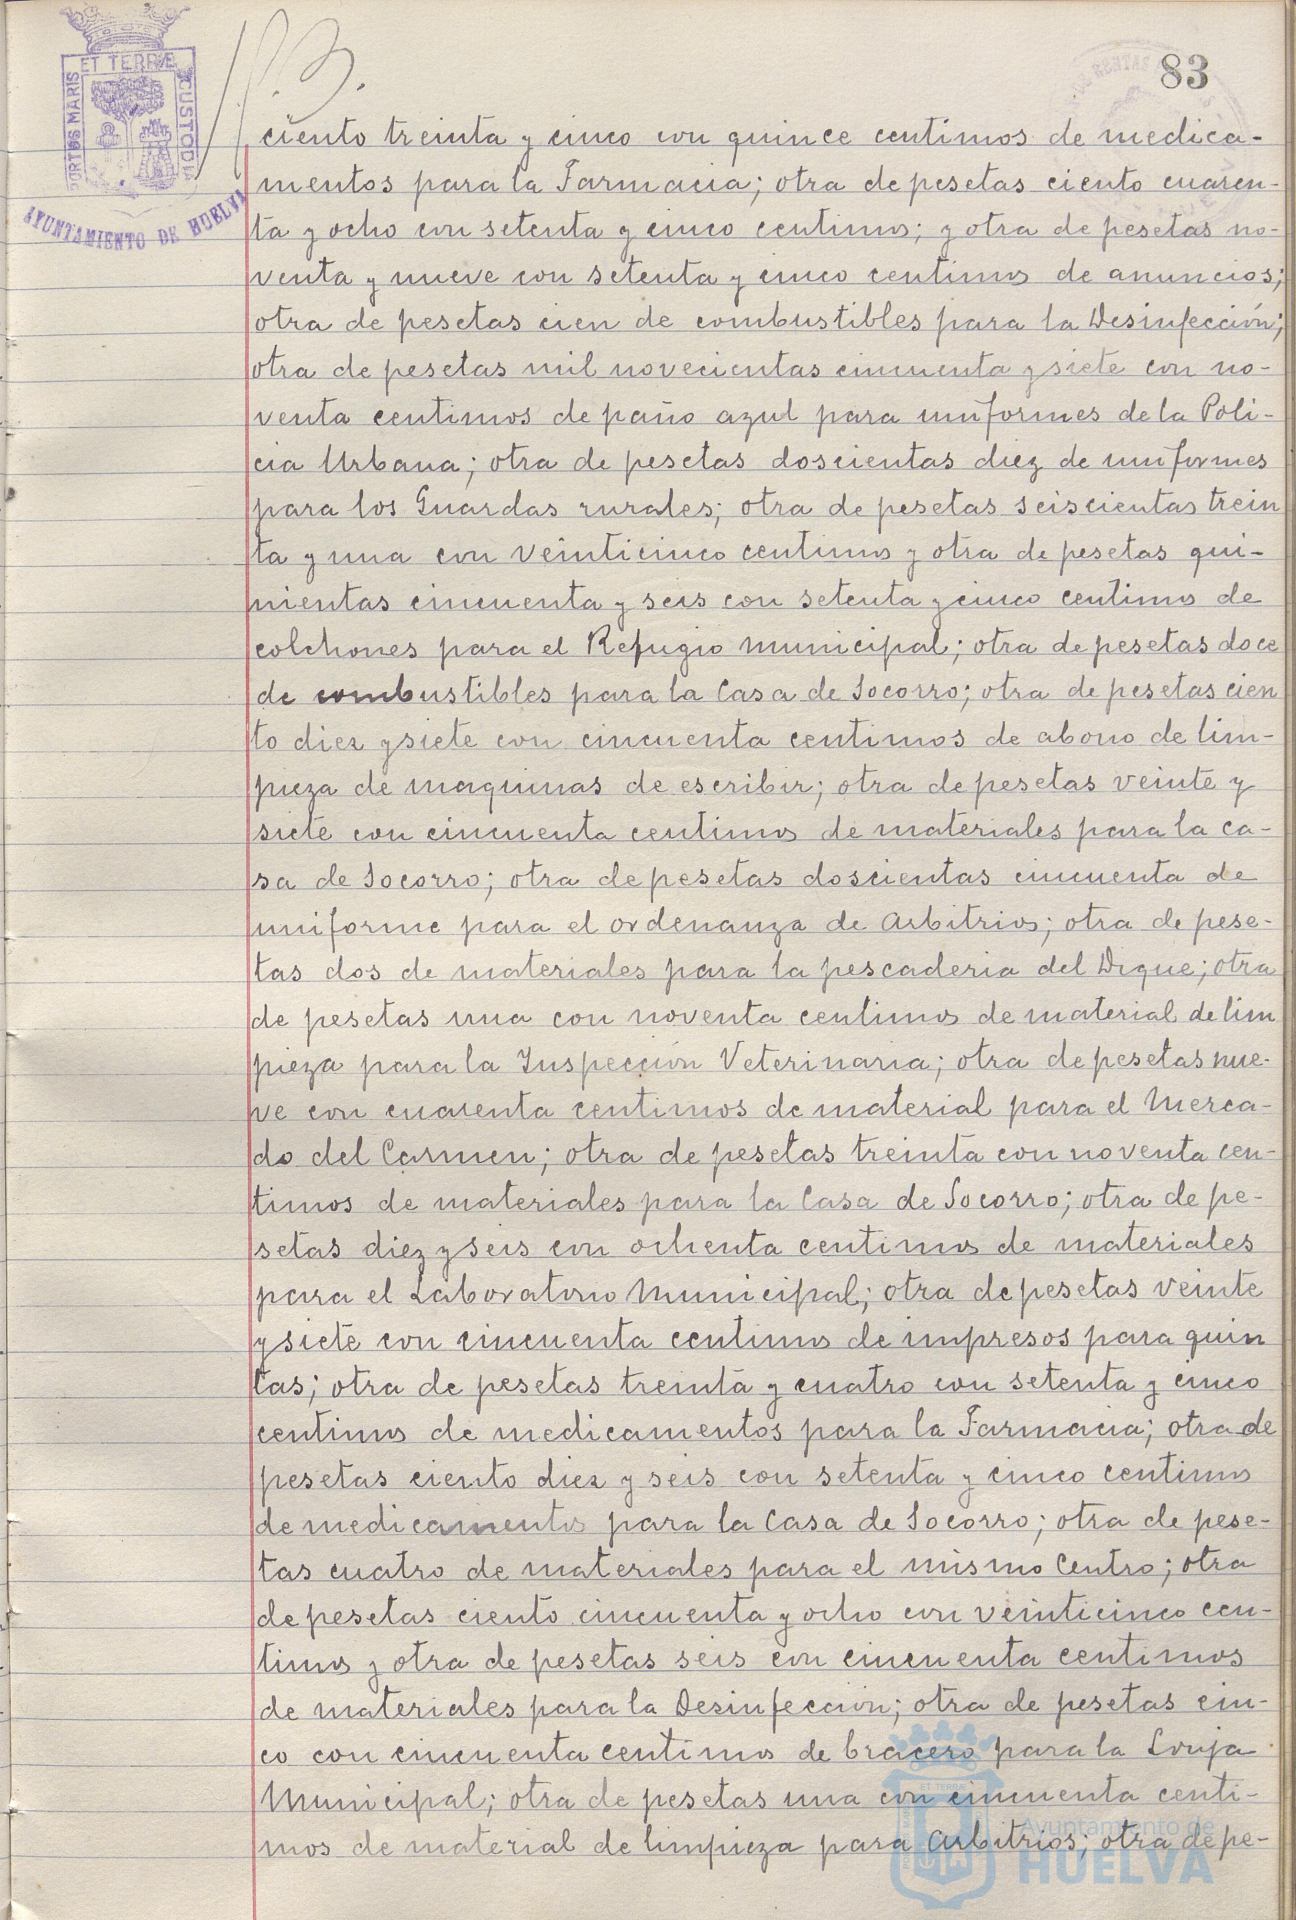 83
PORTUS MARIS ET TERRÆ CUSTODIA
AYUNTAMIENTO DE HUELVA
ciento treinta y cinco con quince centimos de medica-
mentos para la Farmacia; otra de pesetas ciento cuaren-
ta y ocho con setenta y cinco centimos; y otra de pesetas no-
venta y nueve con setenta y cinco centimos de anuncios;
otra de pesetas cien de combustibles para la Desinfección;
otra de pesetas mil novecientas cincuenta y siete con no-
venta centimos de paño azul para uniformes de la Poli-
cia Urbana; otra de pesetas doscientas diez de uniformes
para los Guardas rurales; otra de pesetas seiscientas trein
ta y una con veinticinco centimos y otra de pesetas qui-
nientas cincuenta y seis con setenta y cinco centimos de
colchones para el Refugio municipal; otra de pesetas doce
de combustibles para la Casa de Socorro; otra de pesetas cien
to diez y siete con cincuenta centimos de abono de lim-
pieza de maquinas de escribir; otra de pesetas veinte y
siete con cincuenta centimos de materiales para la ca-
sa de Socorro; otra de pesetas doscientas cincuenta de
uniforme para el ordenanza de Arbitrios; otra de pese-
tas dos de materiales para la pescaderia del Dique; otra
de pesetas una con noventa centimos de material de lim
pieza para la Inspección Veterinaria; otra de pesetas nue-
ve con cuarenta centimos de material para el Merca-
do del Carmen; otra de pesetas treinta con noventa cen-
timos de materiales para la Casa de Socorro; otra de pe-
setas diez y seis con ochenta centimos de materiales
para el Laboratorio Municipal; otra de pesetas veinte
y siete con cincuenta centimos de impresos para quin
tas; otra de pesetas treinta y cuatro con setenta y cinco
centimos de medicamentos para la Farmacia; otra de
pesetas ciento diez y seis con setenta y cinco centimos
de medicamentos para la Casa de Socorro; otra de pese-
tas cuatro de materiales para el mismo Centro; otra
de pesetas ciento cincuenta y ocho con veinticinco cen-
timos y otra de pesetas seis con cincuenta centimos
de materiales para la Desinfección; otra de pesetas cin-
co con cincuenta centimos de bracero para la Lonja
Municipal; otra de pesetas una con cincuenta centi-
mos de material de limpieza para Arbitrios; otra de pe-
Ayuntamiento de
HUELVA